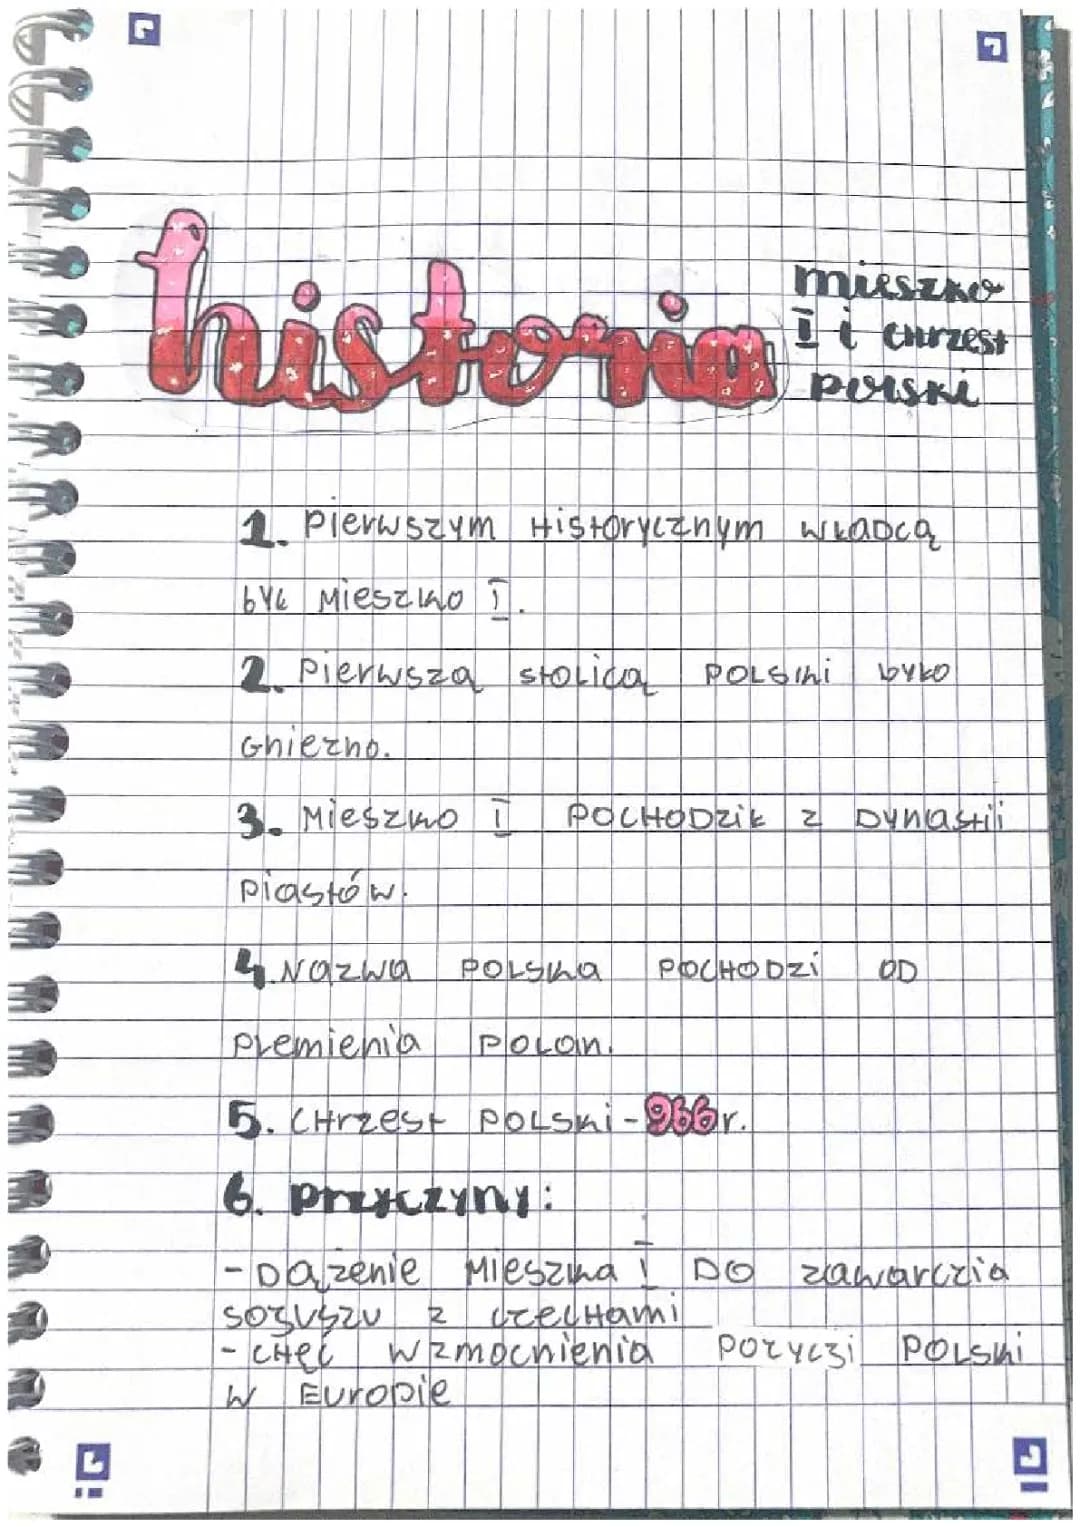 historia
mieszko
I i chrzest
polski
1. Pierwszym Historycznym władcą
był Mieszko I.
2. Pierwszą stolicą Polski było
Gniezno.
3. Mieszko I pochodził z Dynastii
Piastów.
4. Nazwa Polska pochodzi od
plemienia Polan.
5. Chrzest Polski - 966 r.
6. przyczyny:
- Dążenie Mieszka I do zawarczia
sozuszu z Czechami
- chęć wzmocnienia pozyczi Polski
w Europie